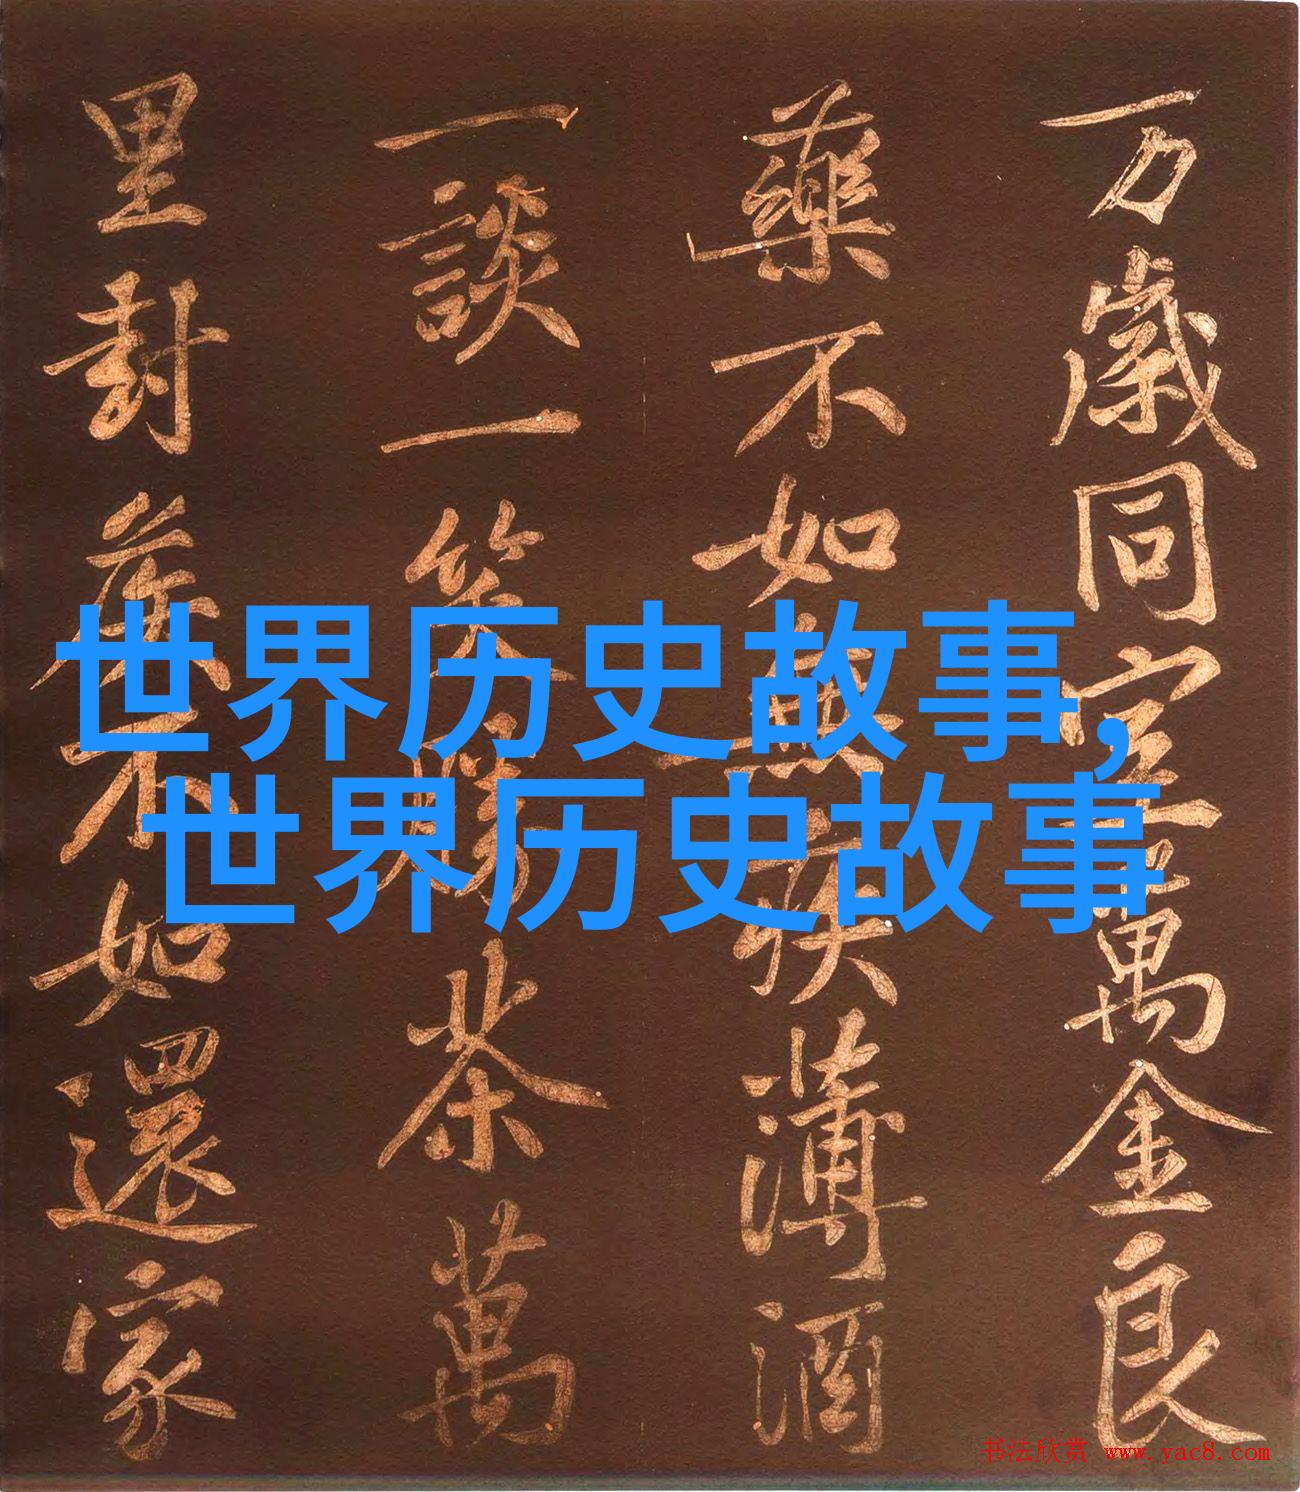 万歲同室萬金良
藥不如無疾薄酒
一談一笑勝茶萬
里封侯不如還家
世界历史故事,
世界历史故事
书法欣赏 www.yac8.com